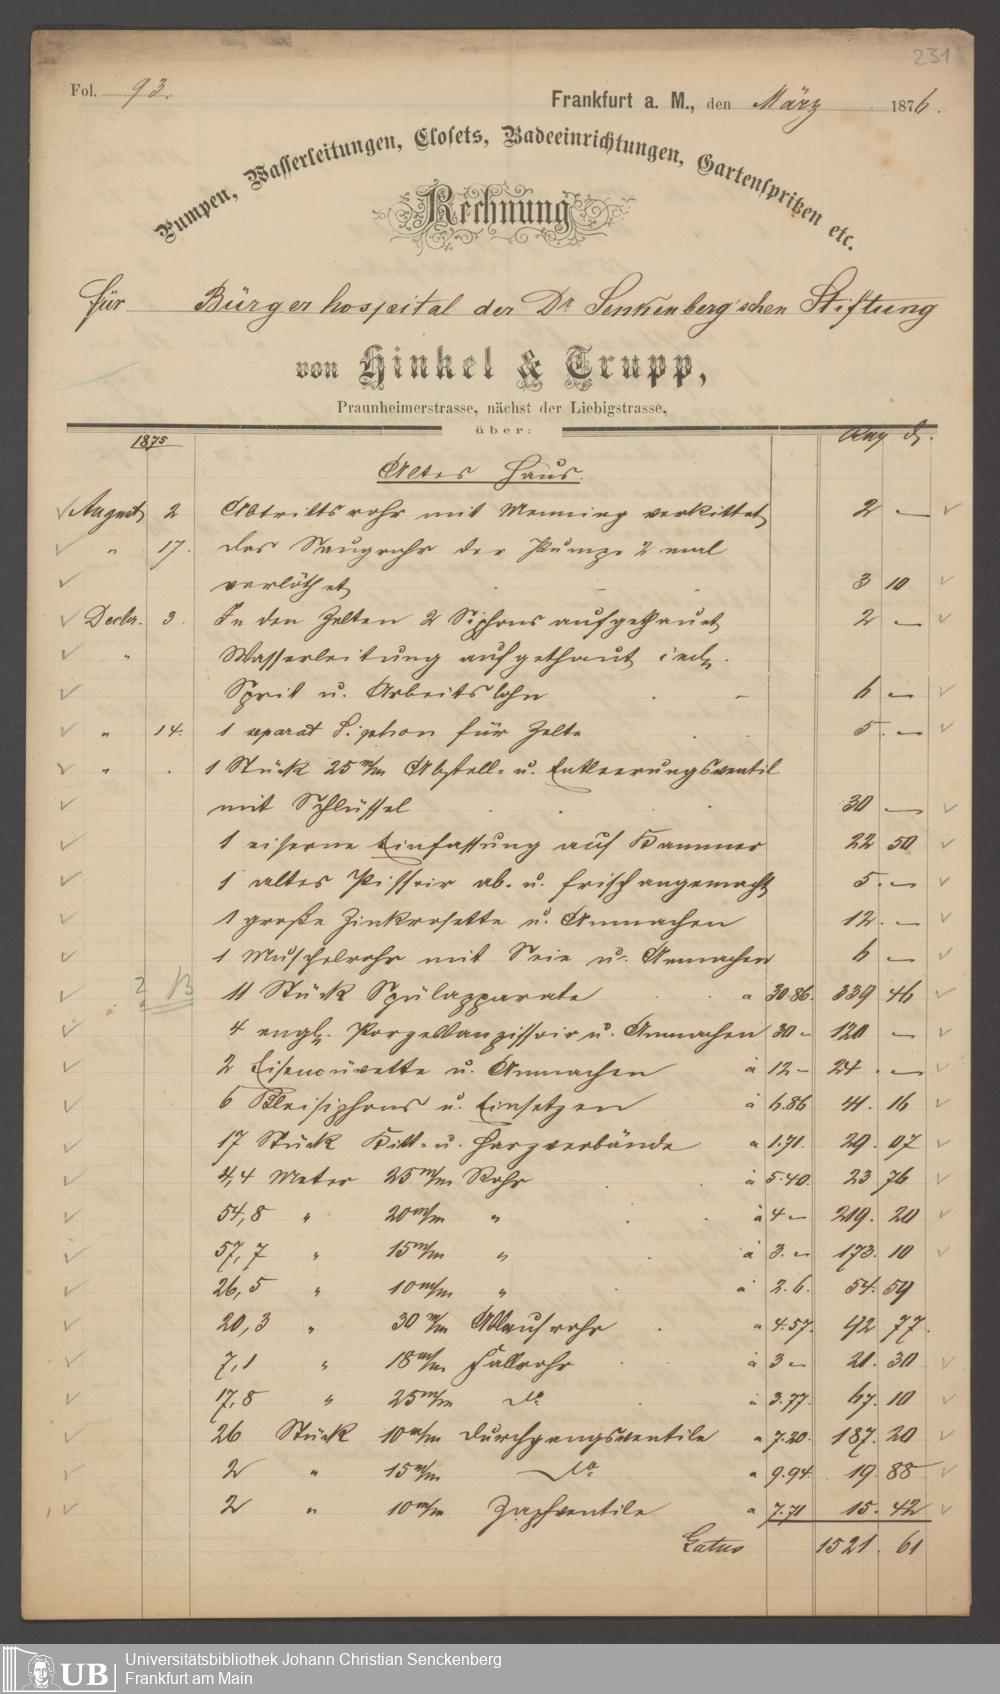 231
Fol. 93.
Frankfurt a. M., den März 1876.
Pumpen, Wasserleitungen, Closets, Badeeinrichtungen, Gartenspritzen etc.
Rechnung
für Bürgerhospital der Dr Senkenberg'schen Stiftung
von Hinkel & Trupp,
Praunheimerstrasse, nächst der Liebigstrasse,
über:
1875
Altes Haus.
August 2 Abtrittsrohr mit Menning verkittet 2 —
" 17. das Saugrohr der Pumpe 2 mal
verlöthet 3 10
Decbr. 3. In den Zelten 2 Siphons aufgethauet 2 —
" Wasserleitung aufgethaut incl.
Sprit u. Arbeitslohn 6 —
" 14. 1 aparat Siphon für Zelte 5. —
" . 1 Stück 25 m/m Abstell- u. Entleerungsventil
mit Schlüssel 30 —
1 eiserne Einfassung auf Kammer 22 50
1 altes Pissoir ab- u. frisch angemacht 5. —
1 große Zinkrosette u. Anmachen 12. —
1 Muschelrohr mit Seie u. Anmachen 6 —
11 Stück Spülapparate a 30.86. 339 46
4 engl. Porzellanpissoir u. Anmachen 30 – 120 —
2 Eisencüvette u. Anmachen à 12 – 24 . —
6 Bleisiphons u. Einsetzen à 6.86 41. 16
17 Stück Kitt- u. Harzverbände a 1.71. 29. 07
4,4 Meter 25 m/m Rohr à 5.40. 23 76
54,8 " 20 m/m " à 4 – 219. 20
57,7 " 15 m/m " à 3. – 173. 10
26,5 " 10 m/m " à 2.6. 54. 59
20,3 " 30 m/m Ablaufrohr a 4.57. 92 77.
7,1 " 18 m/m Fallrohr à 3 – 21. 30
17,8 " 25 m/m do. à 3.77. 67. 10
26 Stück 10 m/m Durchgangsventile a 7.20. 187. 20
2 " 15 m/m do. a 9.94. 19. 88
2 " 10 m/m Zapfventile a 7.71 15. 42
Latus 1521. 61
UB Universitätsbibliothek Johann Christian Senckenberg
Frankfurt am Main